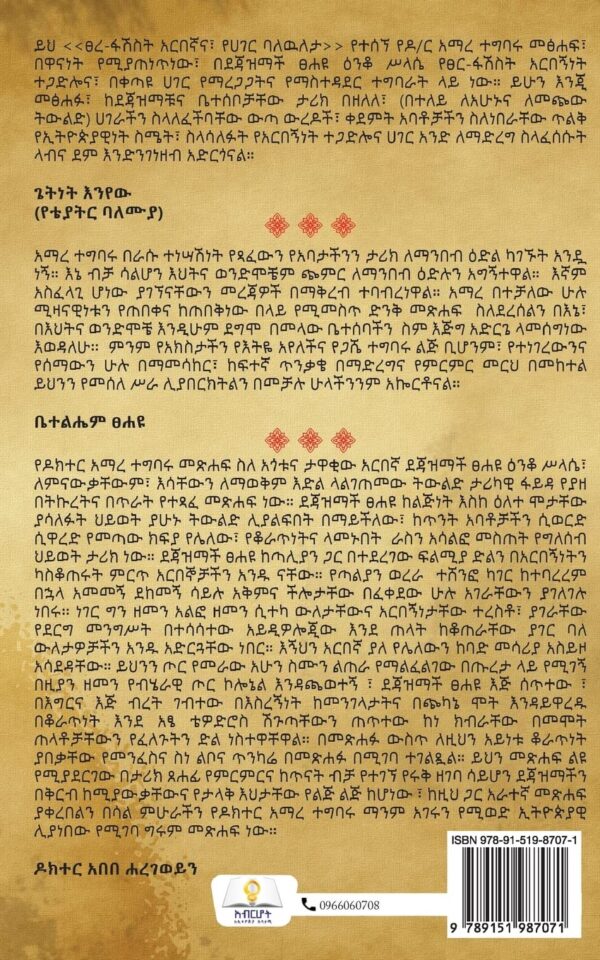 ይህ <<ፀረ-ፋሽስት አርበኛና፣ የሀገር ባለዉለታ>> የተሰኘ የዶ/ር አማረ ተግባሩ መፅሐፍ፣
በዋናነት የሚያጠነጥነው፣ በደጃዝማች ፀሐዩ ዕንቆ ሥላሴ የፀር-ፋሽስት አርበኝነት
ተጋድሎና፣ በቀጣዩ ሀገር የማረጋጋትና የማስተዳደር ተግባራት ላይ ነው። ይሁን እንጂ
መፅሐፉ፣ ከደጃዝማቹና ቤተሰቦቻቸው ታሪክ በዘለለ፣ (በተለይ ለአሁኑና ለመጪው
ትውልድ) ሀገራችን ስላለፈችባቸው ውጣ ውረዶች፣ ቀደምት አባቶቻችን ስለነበራቸው ጥልቅ
የኢትዮጵያዊነት ስሜት፣ ስላሳለፉት የአርበኝነት ተጋድሎና ሀገር አንድ ለማድረግ ስላፈሰሱት
ላብና ደም እንድንገነዘብ አድርጎናል።
ጌትነት እንየው
(የቴያትር ባለሙያ)
አማረ ተግባሩ በራሱ ተነሣሽነት የጻፈውን የአባታችንን ታሪክ ለማንበብ ዕድል ካገኙት አንዷ
ነኝ። እኔ ብቻ ሳልሆን እህትና ወንድሞቼም ጭምር ለማንበብ ዕድሉን አግኝተዋል። እኛም
አስፈላጊ ሆነው ያገኘናቸውን መረጃዎች በማቅረብ ተባብረነዋል። አማረ በተቻለው ሁሉ
ሚዛናዊነቱን የጠበቀና ከጠበቅነው በላይ የሚመስጥ ድንቅ መጽሐፍ ስለደረሰልን በእኔ፣
በእህትና ወንድሞቼ እንዲሁም ደግሞ በመላው ቤተሰባችን ስም እጅግ አድርጌ ላመሰግነው
እወዳለሁ። ምንም የአክስታችን የእትዬ አየለችና የጋሼ ተግባሩ ልጅ ቢሆንም፣ የተነገረውንና
የሰማውን ሁሉ በማመሳከር፣ ከፍተኛ ጥንቃቄ በማድረግና የምርምር መርህ በመከተል
ይህንን የመሰለ ሥራ ሊያበርክትልን በመቻሉ ሁላችንንም አኩርቶናል።
ቤተልሔም ፀሐዩ
የዶክተር አማረ ተግባሩ መጽሐፍ ስለ አጎቱና ታዋቂው አርበኛ ደጃዝማች ፀሐዩ ዕንቆ ሥላሴ፣
ለምናውቃቸውም፣ እሳቸውን ለማወቅም እድል ላልገጠመው ትውልድ ታሪካዊ ፋይዳ የያዘ
በትኩረትና በጥራት የተጻፈ መጽሐፍ ነው። ደጃዝማች ፀሐዩ ከልጅነት እስከ ዕለተ ሞታቸው
ያሳለፉት ህይወት ያሁኑ ትውልድ ሊያልፍበት በማይችለው፣ ከጥንት አባቶቻችን ሲወርድ
ሲዋረድ የመጣው ክፍያ የሌለው፣ የቆራጥነትና ላመኑበት ራስን አሳልፎ መስጠት የግለሰብ
ህይወት ታሪክ ነው። ደጃዝማች ፀሐዩ ከጣሊያን ጋር በተደረገው ፍልሚያ ድልን በአርበኝነትን
ካስቆጠሩት ምርጥ አርበኞቻችን አንዱ ናቸው። የጣልያን ወረራ ተሸንፎ ካገር ከተባረረም
በኋላ አመመኝ ደከመኝ ሳይሉ አቅምና ችሎታቸው በፈቀደው ሁሉ አገራቸውን ያገለገሉ
ነበሩ። ነገር ግን ዘመን አልፎ ዘመን ሲተካ ውለታቸውና አርበኝነታቸው ተረስቶ፣ ያገራቸው
የደርግ መንግሥት በተሳሳተው አይዲዎሎጂው እንደ ጠላት ከቆጠራቸው ያገር ባለ
ውለታዎቻችን አንዱ አድርጓቸው ነበር። እኝህን አርበኛ ያለ የሌለውን ከባድ መሳሪያ አስይዞ
አሳደዳቸው። ይህንን ጦር የመራው አሁን ስሙን ልጠራ የማልፈልገው በጡረታ ላይ የሚገኝ
በዚያን ዘመን የብሄራዊ ጦር ኮሎኔል እንዳጫወተኝ ፣ ደጃዝማች ፀሐዩ እጅ ሰጥተው ፣
በእግርና እጅ ብረት ገብተው በእስረኝነት ከመንገላታትና በጭካኔ ሞት እንዳይዋረዱ
በቆራጥነት እንደ አፄ ቴዎድሮስ ሽጉጣቸውን ጠጥተው ከነ ክብራቸው በመሞት
ጠላቶቻቸውን የፈለጉትን ድል ነስተዋቸዋል። በመጽሐፉ ውስጥ ለዚህን አይነቱ ቆራጥነት
ያበቃቸው የመንፈስና ስነ ልቦና ጥንካሬ በመጽሐፉ በሚገባ ተገልጿል። ይህን መጽሐፍ ልዩ
የሚያደርገው በታሪክ ጸሐፊ የምርምርና ከጥናት ብቻ የተገኘ የሩቅ ዘገባ ሳይሆን ደጃዝማችን
በቅርብ ከሚያውቃቸውና የታላቅ እህታቸው የልጅ ልጅ ከሆነው ፣ ከዚህ ጋር አራተኛ መጽሐፍ
ያቀረበልን በሳል ምሁራችን የዶክተር አማረ ተግባሩ ማንም አገሩን የሚወድ ኢትዮጵያዊ
ሊያነበው የሚገባ ግሩም መጽሐፍ ነው።
ዶክተር አበበ ሐረገወይን
አብርሆት
0966060708
ISBN 978-91-519-8707-1
9 789151 987071